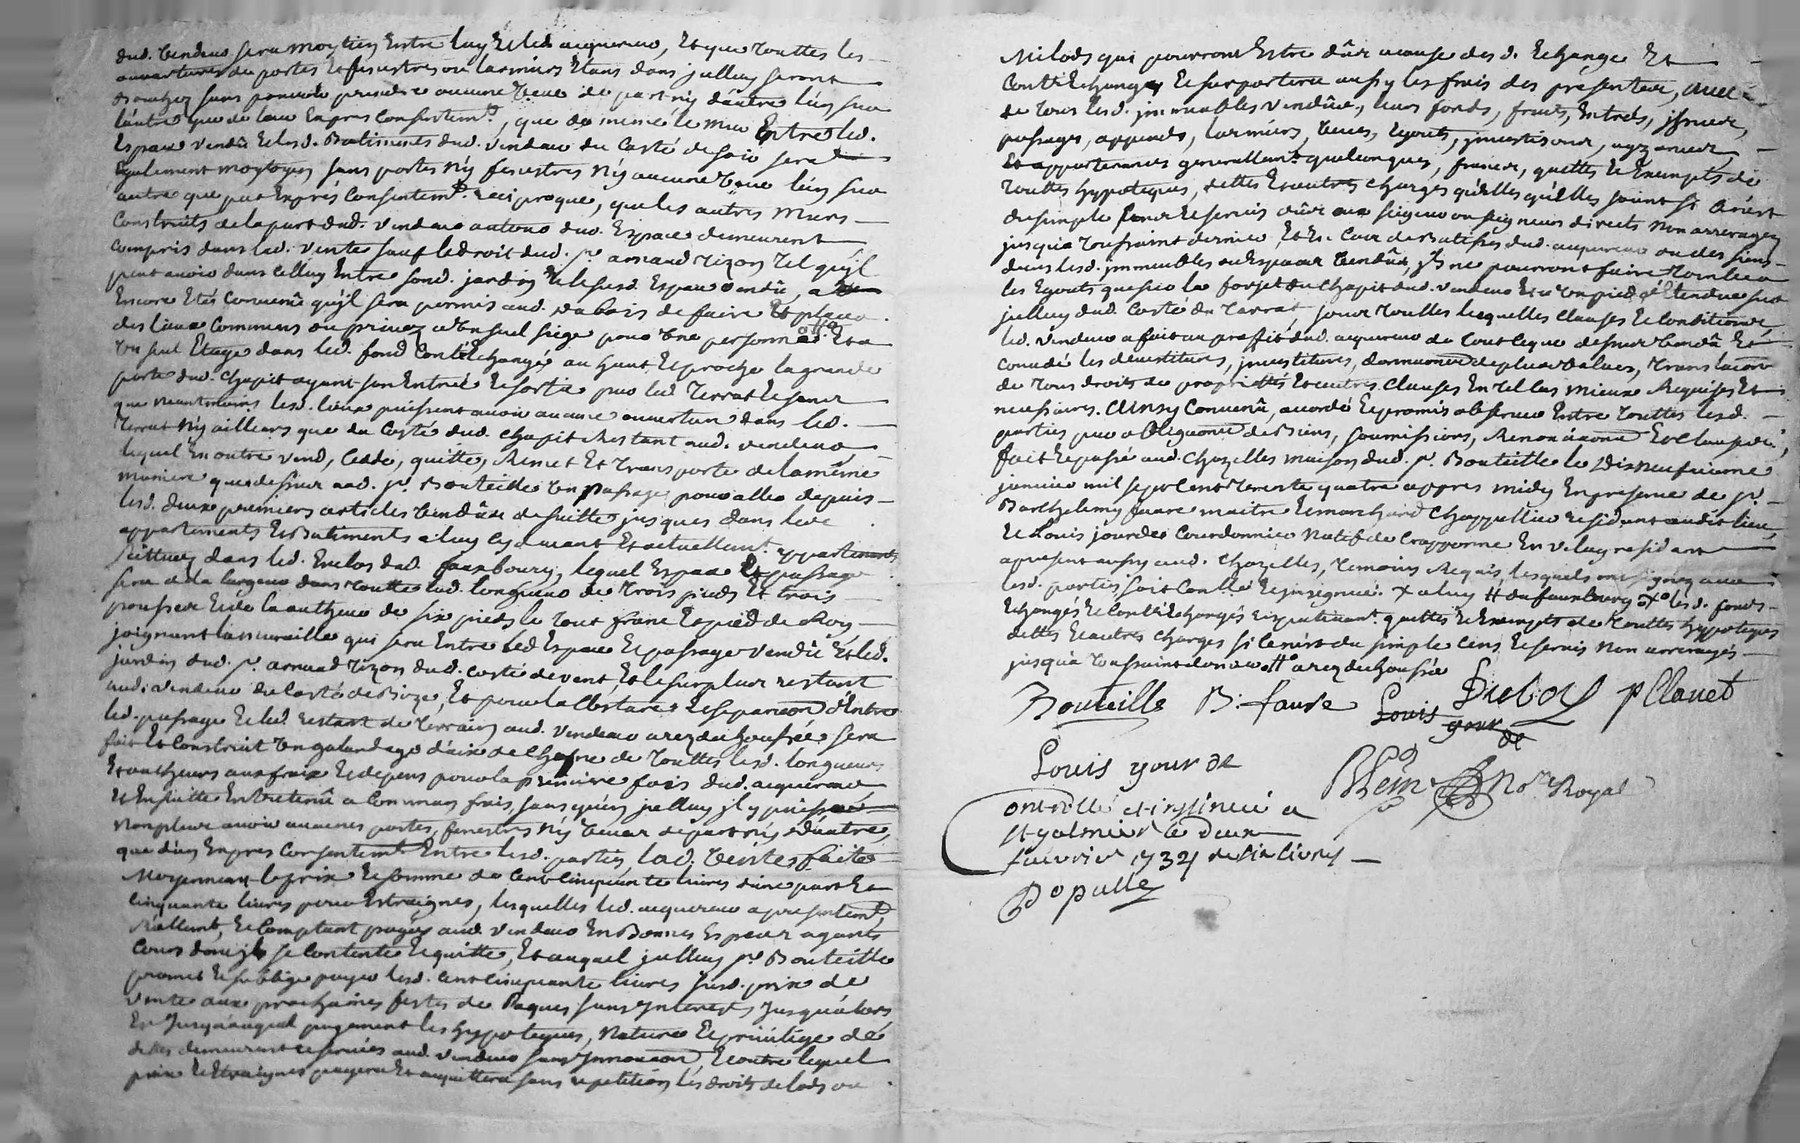 dud. vendeur sera moytien entre luy et led. acquereur, et que touttes les
ouvertures de portes et fenestres ou larmiers etans dans julluy seront
bouchez sans pouvoir prendre aucune veue de part ny d'autre l'un sur
l'autre que de leur expres consentemt, que de meme le mur entre led.
Espace vendû et lesd. Batiments dud. vendeur du Costé de soir sera
Egalement moytoyen sans portes n'y fenestres n'y aucune veue l'un sur
autre que par exprés consentemt. reciproque, que les autres murs
construits de la part dud. vendeur autour dud. Espace demeurent
compris dans led. vente sauf le droit dud. sr. arnaud tizon tel qu'il
peut avoir dans celluy entre son d. jardin et le susd. Espace vendû, a
Encore eté convenû qu'il sera permis aud. dubois de faire et placer
des lieux communs ou privez a un seul siege pour une personne et a
un seul Etage dans led. fond Contr'Echangé au haut et proche la grande
porte dud. chapit ayant son entrée et sortie par led. terrat et sans
que neantmoins lesd. lieux puissent avoir aucune ouverture dans led.
terrat n'y ailleurs que du costé dud. chapit restant aud. vendeur,
lequel en outre vend, cede, quitte, remet et transporte de la même
maniere que dessus aud. sr. Bouteille un passage pour aller depuis
lesd. deux premiers articles vendûs de suitte jusques dans les
appartements et Batiments a luy cy devant et actuellemt. appartenants
scittuez dans led. enclos dud. fauxbourg, lequel Espace et passage
sera de la largeur dans toutte lad. longueur de trois pieds et trois
pouces et de la autheur de six pieds le tout franc et pied de Roy
joignant la muraille qui sera entre led Espace et passage vendû et led.
jardin dud. sr. arnaud tizon dud. costé de vent, et le surplus restant
aud. vendeur du costé de Bize, et pour la Cloture et separaon d'entre
led. passage et led. restant de terrain aud. vendeur a rez de chaussée sera
fait et construit un galandage d'aix de chesne de touttes lesd. longueurs
et autheurs aux fraix et depens pour la premiere fois dud. acquereur
et ensuitte entretenû a communs frais, sans qu'en julluy il y puisse
non plus avoir aucunes portes, fenestres n'y veues de part ny d'autre,
que d'un expres consentemt. entre lesd. parties, lad. vente faite
Moyennant le prix et somme de cent cinquante livres d'une part et
cinquante livres pour Etraignes, lesquelles led. acquereur a presentemt,
reellemt, et comptant payez aud. vendeur en bonnes Especes ayants
cours dont il se contente et quitte, et auquel julluy sr. Bouteille
promet et s'oblige payer lesd. cent cinquante livres susd. prix de
vente aux prochaines festes de Paques sans interets jusqu'alors
et jusqu'auquel payement les hypoteques, nature et privilege de
dettes demeurent reservées aud. vendeur sans innovaon, et outre lequel
prix et Etraignes payera et acquittera sans repetition les droits de lods ou
Milods qui pourront estre dûs a cause des d. Echange et
Contr'Echange et suportera aussy les frais des presentes, avec
de tous lesd. jmmeubles vendûs, leurs fonds, fruits, entrées, issues,
passages, appends, larmiers, veues, Egouts, jnvestisons, ayzances,
et appartenances generallemt. quelconques, francs, quittes et exempts de
touttes hypoteques, dettes et autres charges qu'elles qu'elles soient si ce n'est
du simple cens et servis dûs aux seigneur ou seigneurs directs non arreragez
jusqu'a toussaint dernier et es cas de Batisses dud. acquereur ou des siens
dans lesd. jmmeubles ou Espaces vendûs, ils ne pourront faire tomber
les Egouts que sur la forjet du chapit dud. vendeur et a un pied d'Etendue sur
julluy dud. costé du terrat, sous touttes lesquelles clauses et conditions,
led. vendeur a fait au profit dud. acquereur de tout ce que dessus vendû et
concedé les devestitures, jnvestitures, donnaons de plus values, translaon
de tous droits de proprietté et autres clauses en tel cas mieux requises et
necessaires. Ainsy convenû, accordé et promis observer entre touttes lesd.
parties par obligaons de Biens, soumissions, renonciaons et clauses,
fait et passé aud. Chazelles maison dud. sr. Bouteille le Dixneufvieme
janvier mil sept cent trente quatre appres midy en presence de sr.
Barthelemy faure maitre et marchand Chappellier residant audit lieu,
et Louis jourde Courdonnier natif de Crapponne en Velay residant
a present aussy aud. Chazelles, temoins requis, lesquels ont signez avec
lesd. parties soit Conlle et insinué. + a luy # du fauxbourg +o lesd. fonds
Echangés et Contr'Echangés appartienant. quittes et exempts de touttes hypoteques
dettes et autres charges si ce n'est du simple cens et servis non arreragés
jusqu'a toussaint dernier #o a rez de chaussée
Bouteille B. faure Louis your de Duboy P Clauet
Louis your de
Nore Royal
Controllé et insinué a
St galmier le deux
fevrier 1734 re six livres
Populle